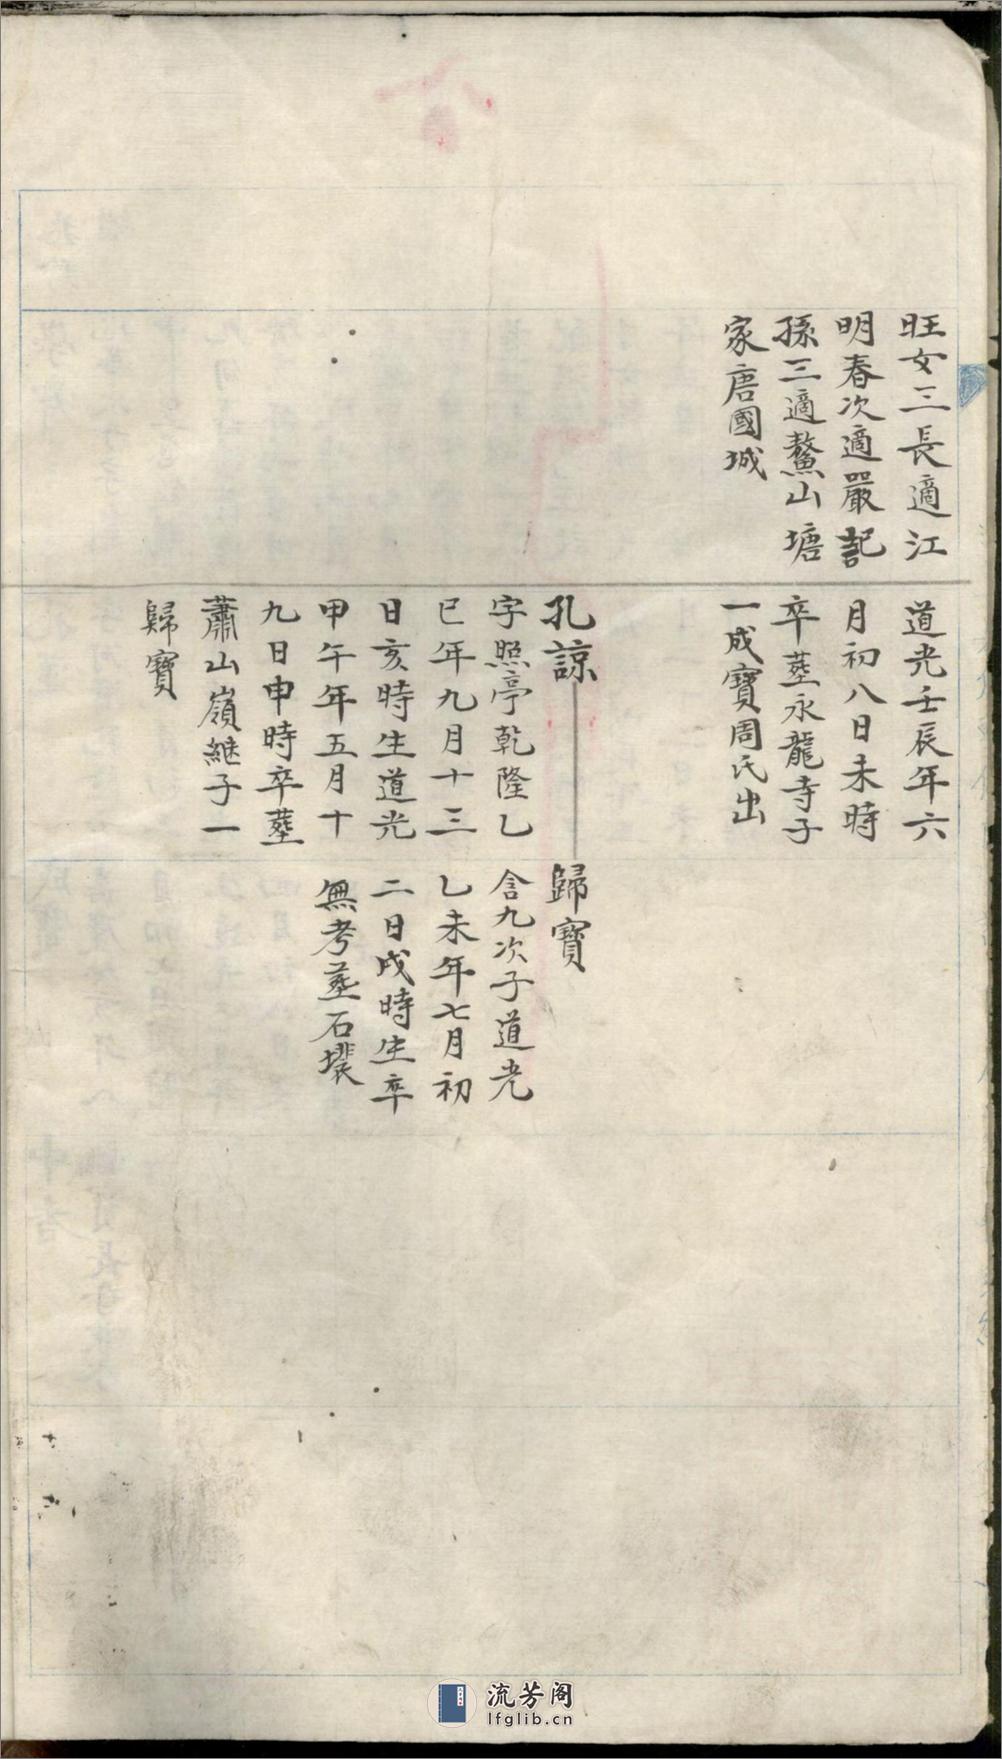 旺女三長適江
明春次適嚴記
孫三適鰲山塘
家唐國城
道光壬辰年六
月初八日未時
卒塟永龍寺子
一成寶周氏出
孔諒
字照亭乾隆乙
巳年九月十三
日亥時生道光
甲午年五月十
九日申時卒塟
蕭山嶺継子一
歸寶
歸寶
含九次子道光
乙未年七月初
二日戌時生卒
無考塟石壋
流芳阁
lfglib.cn